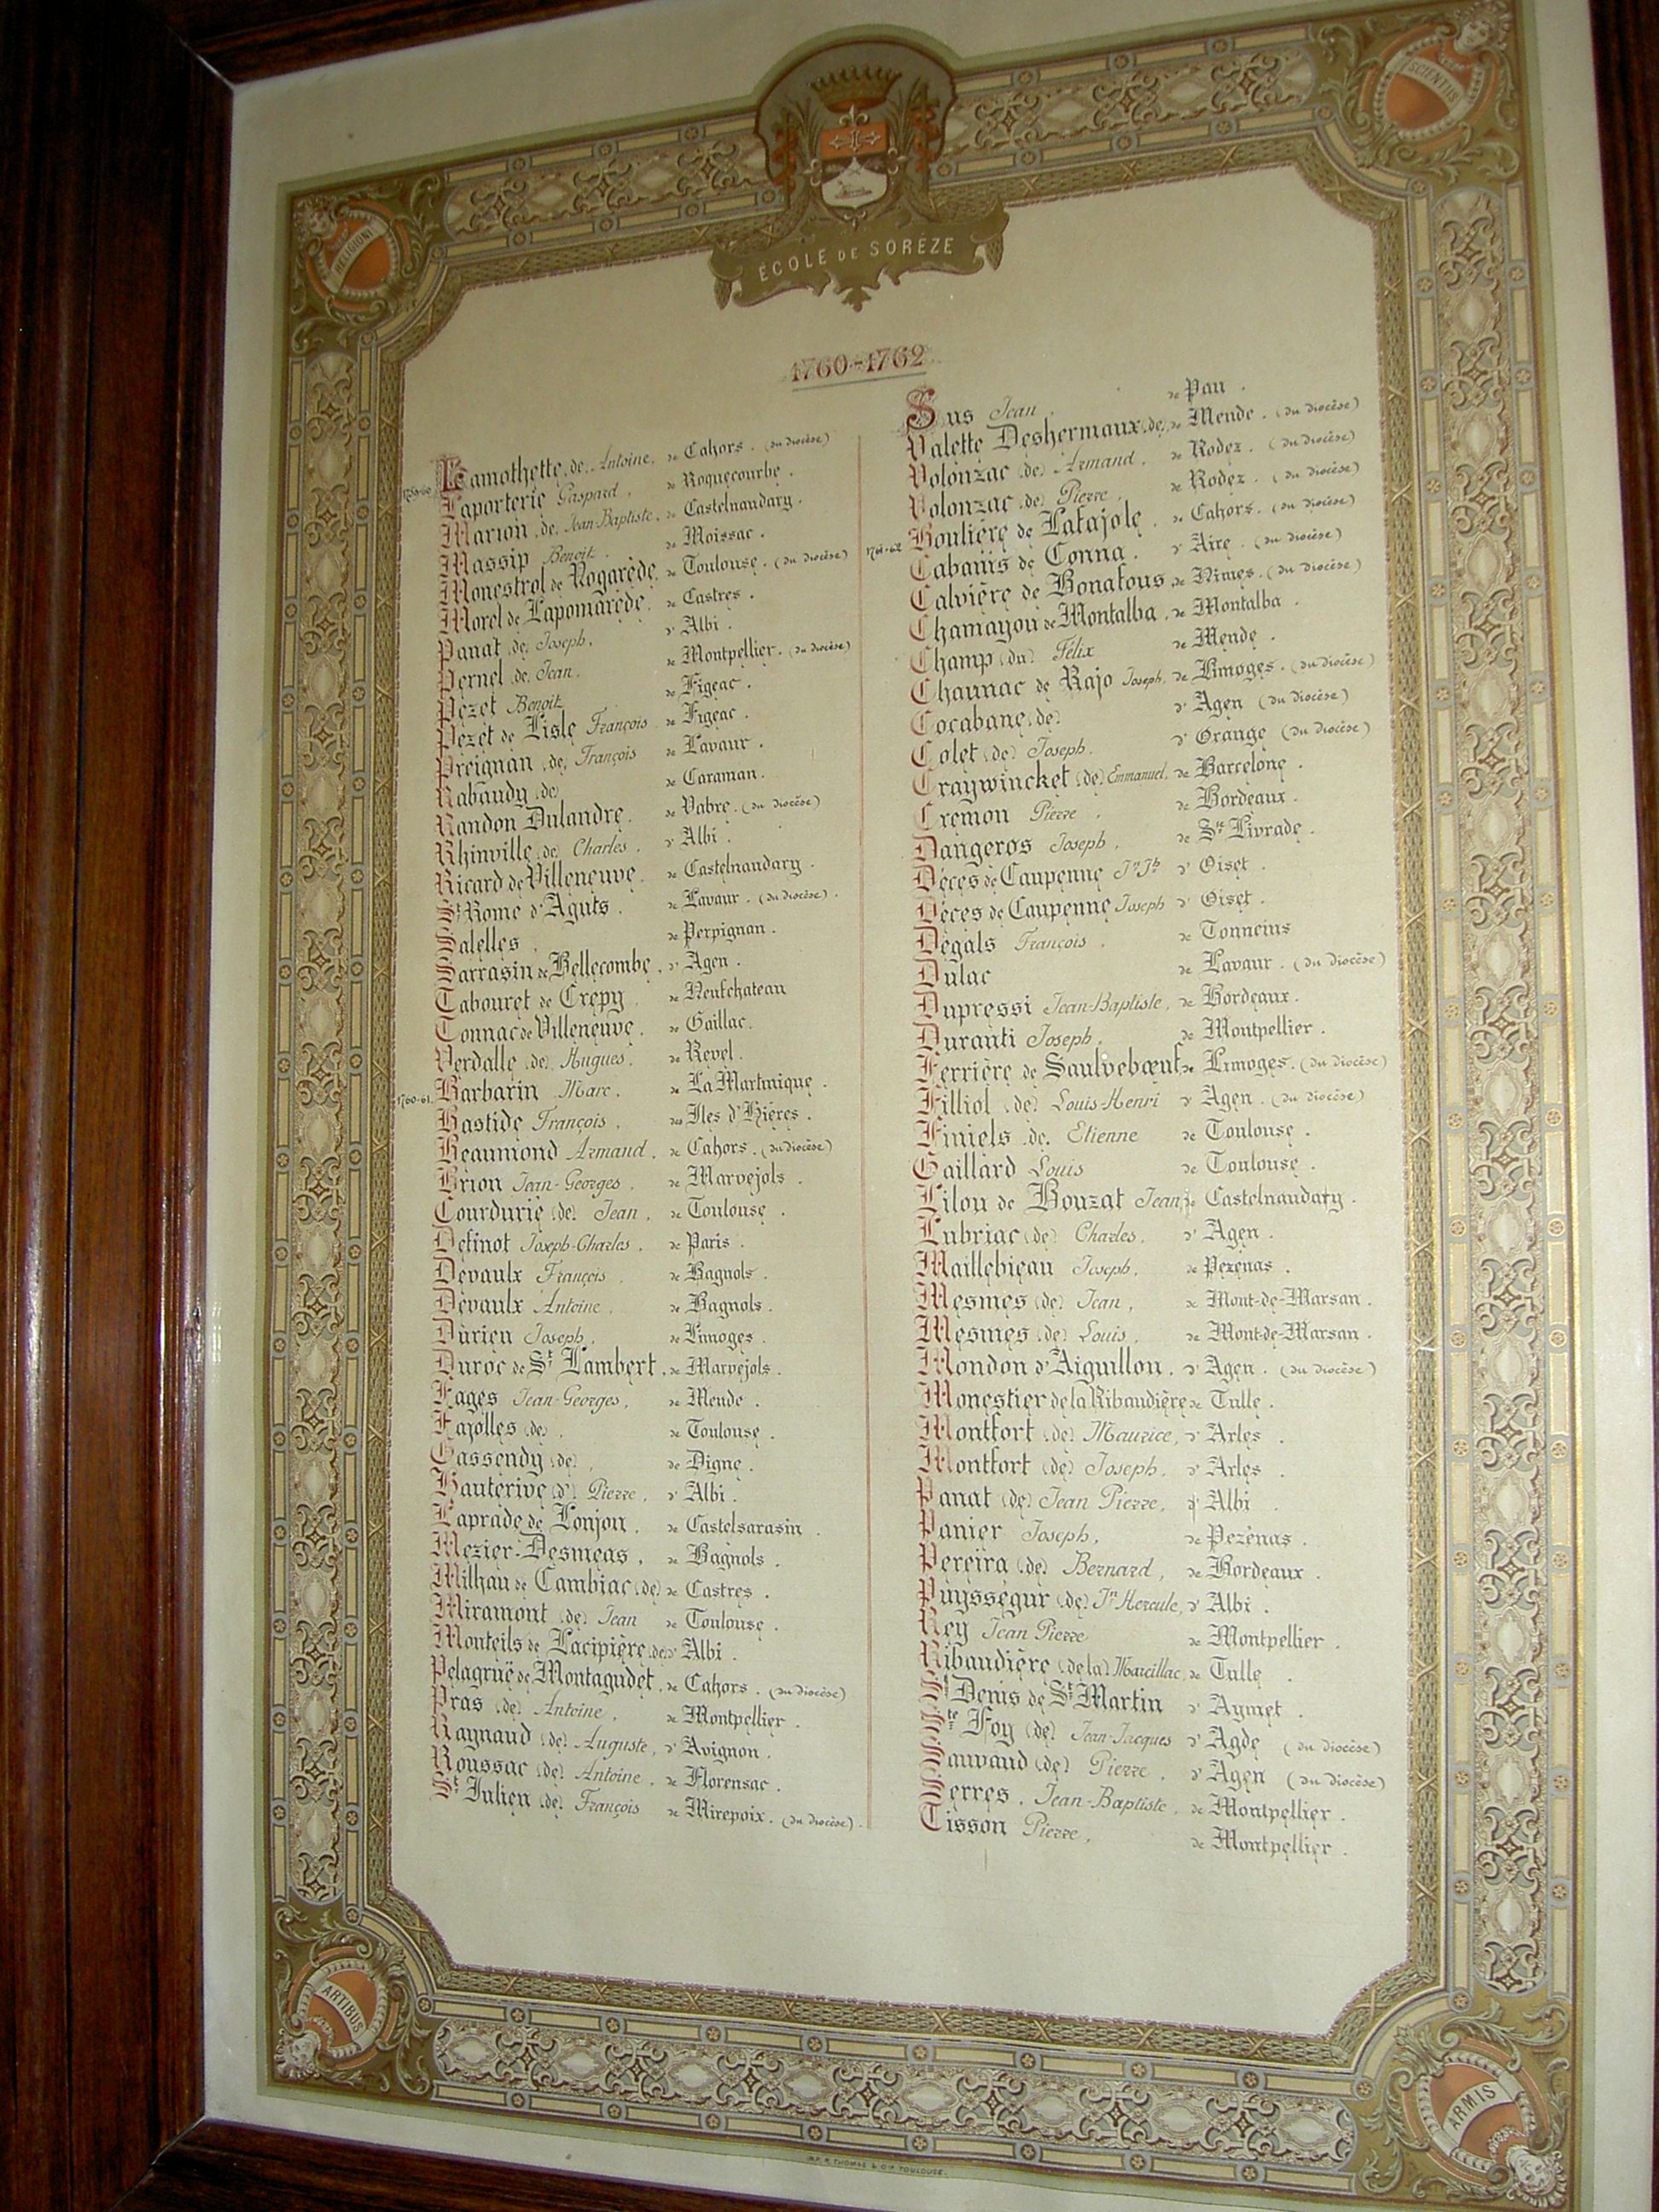 RELIGIONI
SCIENTIIS
ÉCOLE DE SORÈZE
1760-1762
Lamothette (de) Antoine, de Cahors. (du diocèse)
Laporterie Gaspard, de Roquecourbe.
Marion (de) Jean-Baptiste, de Castelnaudary.
Massip Benoit. de Moissac.
Monestrol de Rogarède, de Toulouse. (du diocèse)
Morel de Lapomarède. de Castres.
Panat (de) Joseph. d'Albi.
Pernel (de) Jean. de Montpellier. (du diocèse)
Pezet Benoit de Figeac.
Pezet de Lisle François de Figeac.
Preignan (de) François de Lavaur.
Rabaudy (de) de Caraman.
Randon Dulandre. de Vabre. (du diocèse)
Rhinville (de) Charles. d'Albi.
Ricard de Villeneuve. de Castelnaudary.
St Rome d'Aguts. de Lavaur. (du diocèse).
Salelles. de Perpignan.
Sarrasin de Bellecombe. d'Agen.
Tabouret de Crepy. de Neufchateau
Tonnac de Villeneuve. de Gaillac.
Verdalle (de) Hugues. de Revel.
1760-61. Barbarin Marc. de La Martinique.
Bastide François, des Iles d'Hières.
Beaumond Armand. de Cahors. (du diocèse)
Brion Jean-Georges. de Marvejols.
Courdurie (de) Jean, de Toulouse.
Definot Joseph-Charles. de Paris.
Devaulx François, de Bagnols.
Devaulx Antoine. de Bagnols.
Durieu Joseph. de Limoges.
Duroc de St Lambert. de Marvejols.
Fages Jean-Georges, de Mende.
Fajolles (de), de Toulouse.
Gassendy (de), de Digne.
Hauterive (d') Pierre, d'Albi.
Laprade de Lonjon. de Castelsarasin.
Mezier-Desmeas, de Bagnols.
Milhau de Cambiac (de) de Castres.
Miramont (de) Jean de Toulouse.
Monteils de Lacipière (de) d'Albi.
Pelagruë de Montagudet. de Cahors. (du diocèse)
Pras (de) Antoine, de Montpellier.
Raynaud (de) Auguste, d'Avignon.
Roussac (de) Antoine. de Florensac.
St Julien (de) François de Mirepoix. (du diocèse).
Sus Jean. de Pau.
Valette Deshermaux (de) de Mende. (du diocèse)
Volonzac (de) Armand. de Rodez. (du diocèse)
Volonzac (de) Pierre, de Rodez. (du diocèse)
1761-62 Boulière de Lafajole. de Cahors. (du diocèse)
Cabanis de Conna. d'Aire. (du diocèse)
Calvière de Bonafous, de Nîmes. (du diocèse)
Chamayou de Montalba. de Montalba.
Champ (du) Félix de Mende.
Chaunac de Rajo Joseph. de Limoges. (du diocèse)
Cocabane (de) d'Agen (du diocèse)
Colet (de) Joseph. d'Orange (du diocèse)
Craywincket (de) Emmanuel. de Barcelone.
Cremon Pierre. de Bordeaux.
Dangeros Joseph. de Ste Livrade.
Dèces de Caupenne Jn Jh d'Oiset.
Dèces de Caupenne Joseph d'Oiset.
Degals François. de Tonneins
Dulac de Lavaur. (du diocèse)
Dupressi Jean-Baptiste, de Bordeaux.
Duranti Joseph. de Montpellier.
Ferrière de Saulvebœuf de Limoges. (du diocèse)
Filliol (de) Louis-Henri d'Agen. (du diocèse)
Finiels (de) Etienne de Toulouse.
Gaillard Louis de Toulouse.
Lilou de Bouzat Jean, de Castelnaudary.
Lubriac (de) Charles. d'Agen.
Maillebieau Joseph. de Pezenas.
Mesmes (de) Jean, de Mont-de-Marsan.
Mesmes (de) Louis. de Mont-de-Marsan.
Mondon d'Aiguillon. d'Agen. (du diocèse)
Monestier de la Ribaudière de Tulle.
Montfort (de) Maurice, d'Arles.
Montfort (de) Joseph. d'Arles.
Panat (de) Jean Pierre, d'Albi.
Panier Joseph, de Pezénas.
Pereira (de) Bernard, de Bordeaux.
Puysségur (de) Jn Hercule, d'Albi.
Rey Jean Pierre de Montpellier.
Ribaudière (de la) Marcillac, de Tulle.
St Denis de St Martin d'Aymet.
Ste Foy (de) Jean-Jacques d'Agde (du diocèse)
Sauvaud (de) Pierre. d'Agen (du diocèse)
Serres. Jean-Baptiste. de Montpellier.
Tisson Pierre, de Montpellier.
ARTIBUS
ARMIS